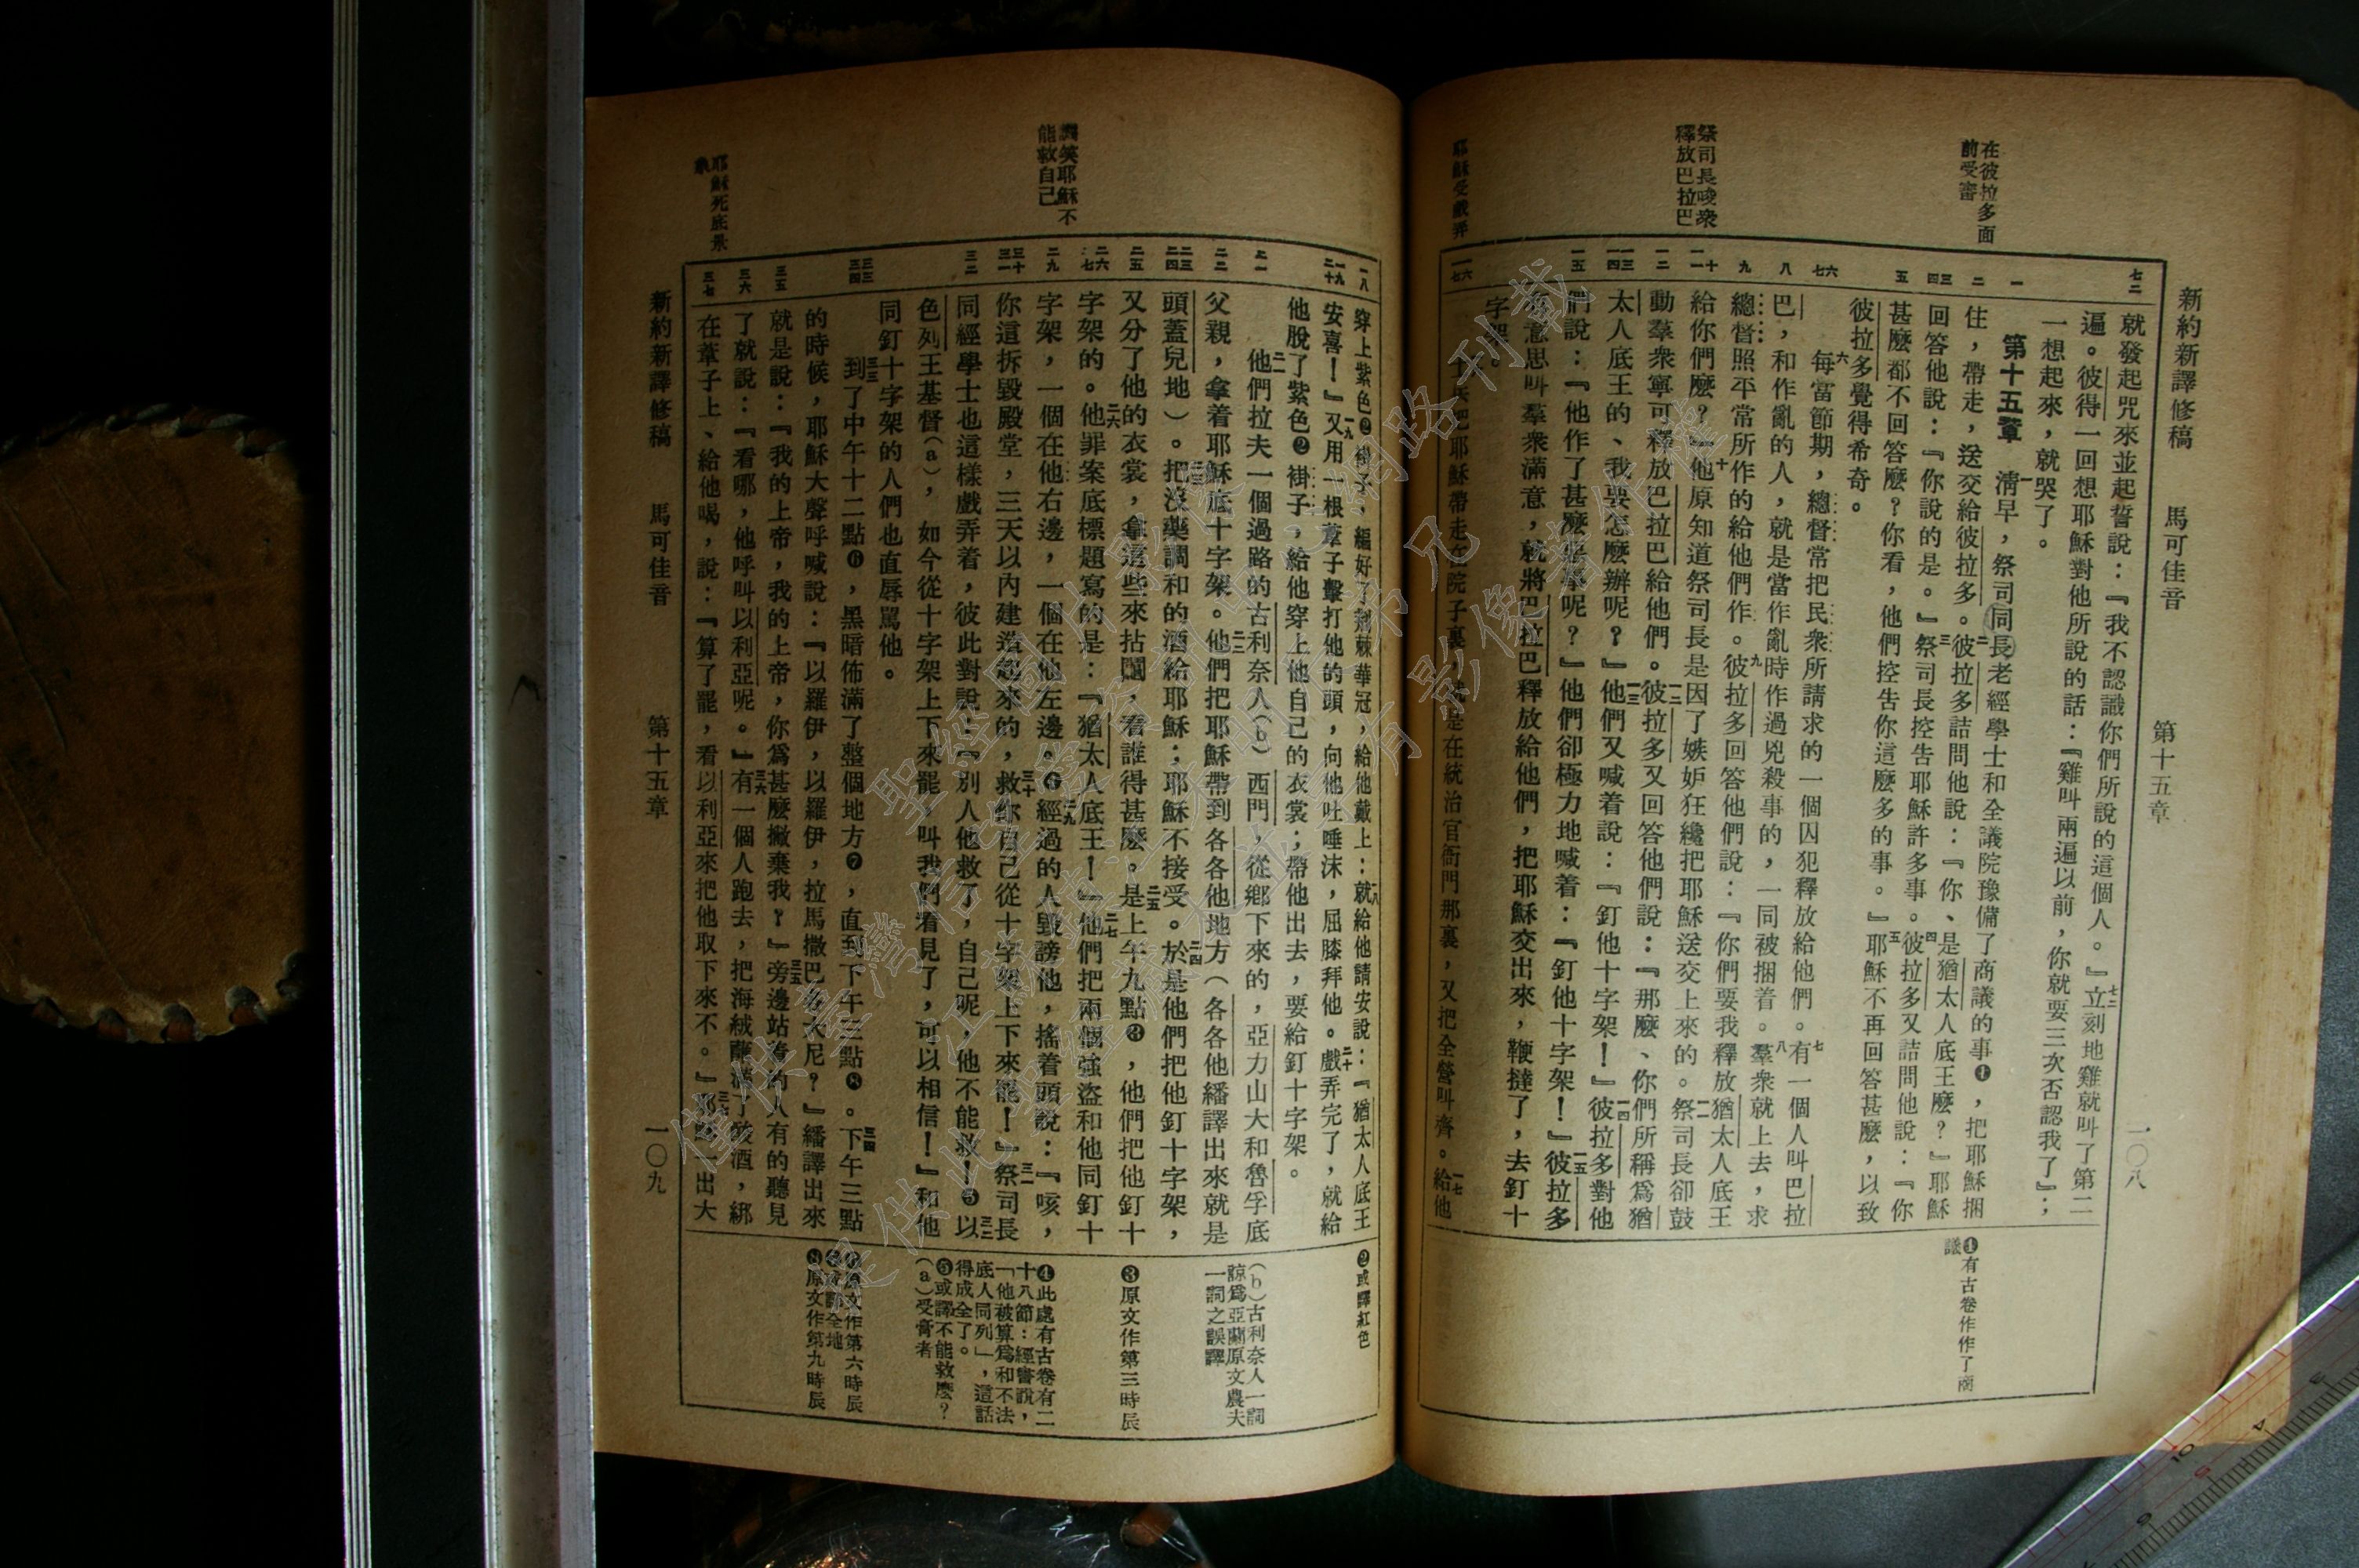 新約新譯修稿　馬可佳音　第十五章　一〇八
在彼拉多面
前受審
祭司長唆衆
釋放巴拉巴
耶穌受戲弄
七二
一
二
三四
五
六七
八
九
十一
二
一三一四
一五
一六一七
就發起咒來並起誓說：『我不認識你們所說的這個人。』七二立刻地雞就叫了第二
遍。彼得一回想耶穌對他所說的話：『雞叫兩遍以前，你就要三次否認我了』；
一想起來，就哭了。
第十五章　一清早，祭司長同長老經學士和全議院豫備了商議的事❶，把耶穌捆
住，帶走，送交給彼拉多。二彼拉多詰問他說：『你、是猶太人底王麼？』耶穌
回答他說：『你說的是。』三祭司長控告耶穌許多事。四彼拉多又詰問他說：『你
甚麼都不回答麼？你看，他們控告你這麼多的事。』五耶穌不再回答甚麼，以致
彼拉多覺得希奇。
六每當節期，總督常把民衆所請求的一個囚犯釋放給他們。七有一個人叫巴拉
巴，和作亂的人，就是當作亂時作過兇殺事的，一同被捆着。八羣衆就上去，求
總督照平常所作的給他們作。九彼拉多回答他們說：『你們要我釋放猶太人底王
給你們麼？』十他原知道祭司長是因了嫉妒狂纔把耶穌送交上來的。一一祭司長卻鼓
動羣衆寧可釋放巴拉巴給他們。一二彼拉多又回答他們說：『那麼、你們所稱爲猶
太人底王的、我要怎麼辦呢？』一三他們又喊着說：『釘他十字架！』一四彼拉多對他
們說：『他作了甚麼惡事呢？』他們卻極力地喊着：『釘他十字架！』一五彼拉多
意思叫羣衆滿意，就將巴拉巴釋放給他們，把耶穌交出來，鞭撻了，去釘十
字架。
把耶穌帶走在院子裏，就是在統治官衙門那裏，又把全營叫齊。一七給他
❶有古卷作作了商
議
一八
一九二十
二一
二二
二三二四
二五
二六二七
二九
三十三一
三二
三三三四
三五
三六
三七
譏笑耶穌不
能救自己
耶穌死底景
象
穿上紫色❷褂子，編好了荆棘華冠，給他戴上：一八就給他請安說：『猶太人底王
安喜！』一九又用一根葦子擊打他的頭，向他吐唾沫，屈膝拜他。二十戲弄完了，就給
他脫了紫色❷褂子，給他穿上他自己的衣裳；帶他出去，要給釘十字架。
二一他們拉夫一個過路的古利奈人（b）西門，從鄉下來的，亞力山大和魯孚底
父親，拿着耶穌底十字架。二二他們把耶穌帶到各各他地方（各各他繙譯出來就是
頭蓋兒地）。二三把沒藥調和的酒給耶穌；耶穌不接受。二四於是他們把他釘十字架，
又分了他的衣裳，拿這些來拈鬮，看誰得甚麼。二五是上午九點❸，他們把他釘十
字架的。二六他罪案底標題寫的是：『猶太人底王！』二七他們把兩個強盜和他同釘十
字架，一個在他右邊，一個在他左邊。❹二九經過的人毀謗他，搖着頭說：『咳，
你這拆毀殿堂，三天以內建造起來的，三十救你自己從十字架上下來罷！』三一祭司長
同經學士也這樣戲弄着，彼此對說：『別人他救了，自己呢，他不能救！❺三二以
色列王基督（a），如今從十字架上下來罷，叫我們看見了，可以相信！』和他
同釘十字架的人們也直辱罵他。
三三到了中午十二點❻，黑暗佈滿了整個地方❼，直到下午三點❽。三四下午三點
的時候，耶穌大聲呼喊說：『以羅伊，以羅伊，拉馬撒巴各大尼？』繙譯出來
就是說：『我的上帝，我的上帝，你爲甚麼撇棄我？』三五旁邊站着的人有的聽見
了就說：『看哪，他呼叫以利亞呢。』三六有一個人跑去，把海絨蘸滿了酸酒，綁
在葦子上、給他喝，說：『算了罷，看以利亞來把他取下來不。』三七耶穌一出大
❷或譯紅色
（b）古利奈人一詞
諒爲亞蘭原文農夫
一詞之誤譯
❸原文作第三時辰
❹此處有古卷有二
十八節：經書說，
「他被算爲和不法
底人同列」，這話
得成全了。
❺或譯不能救麼？
（a）受膏者
❻原文作第六時辰
❼或譯全地
❽原文作第九時辰
新約新譯修稿　馬可佳音　第十五章　一〇九